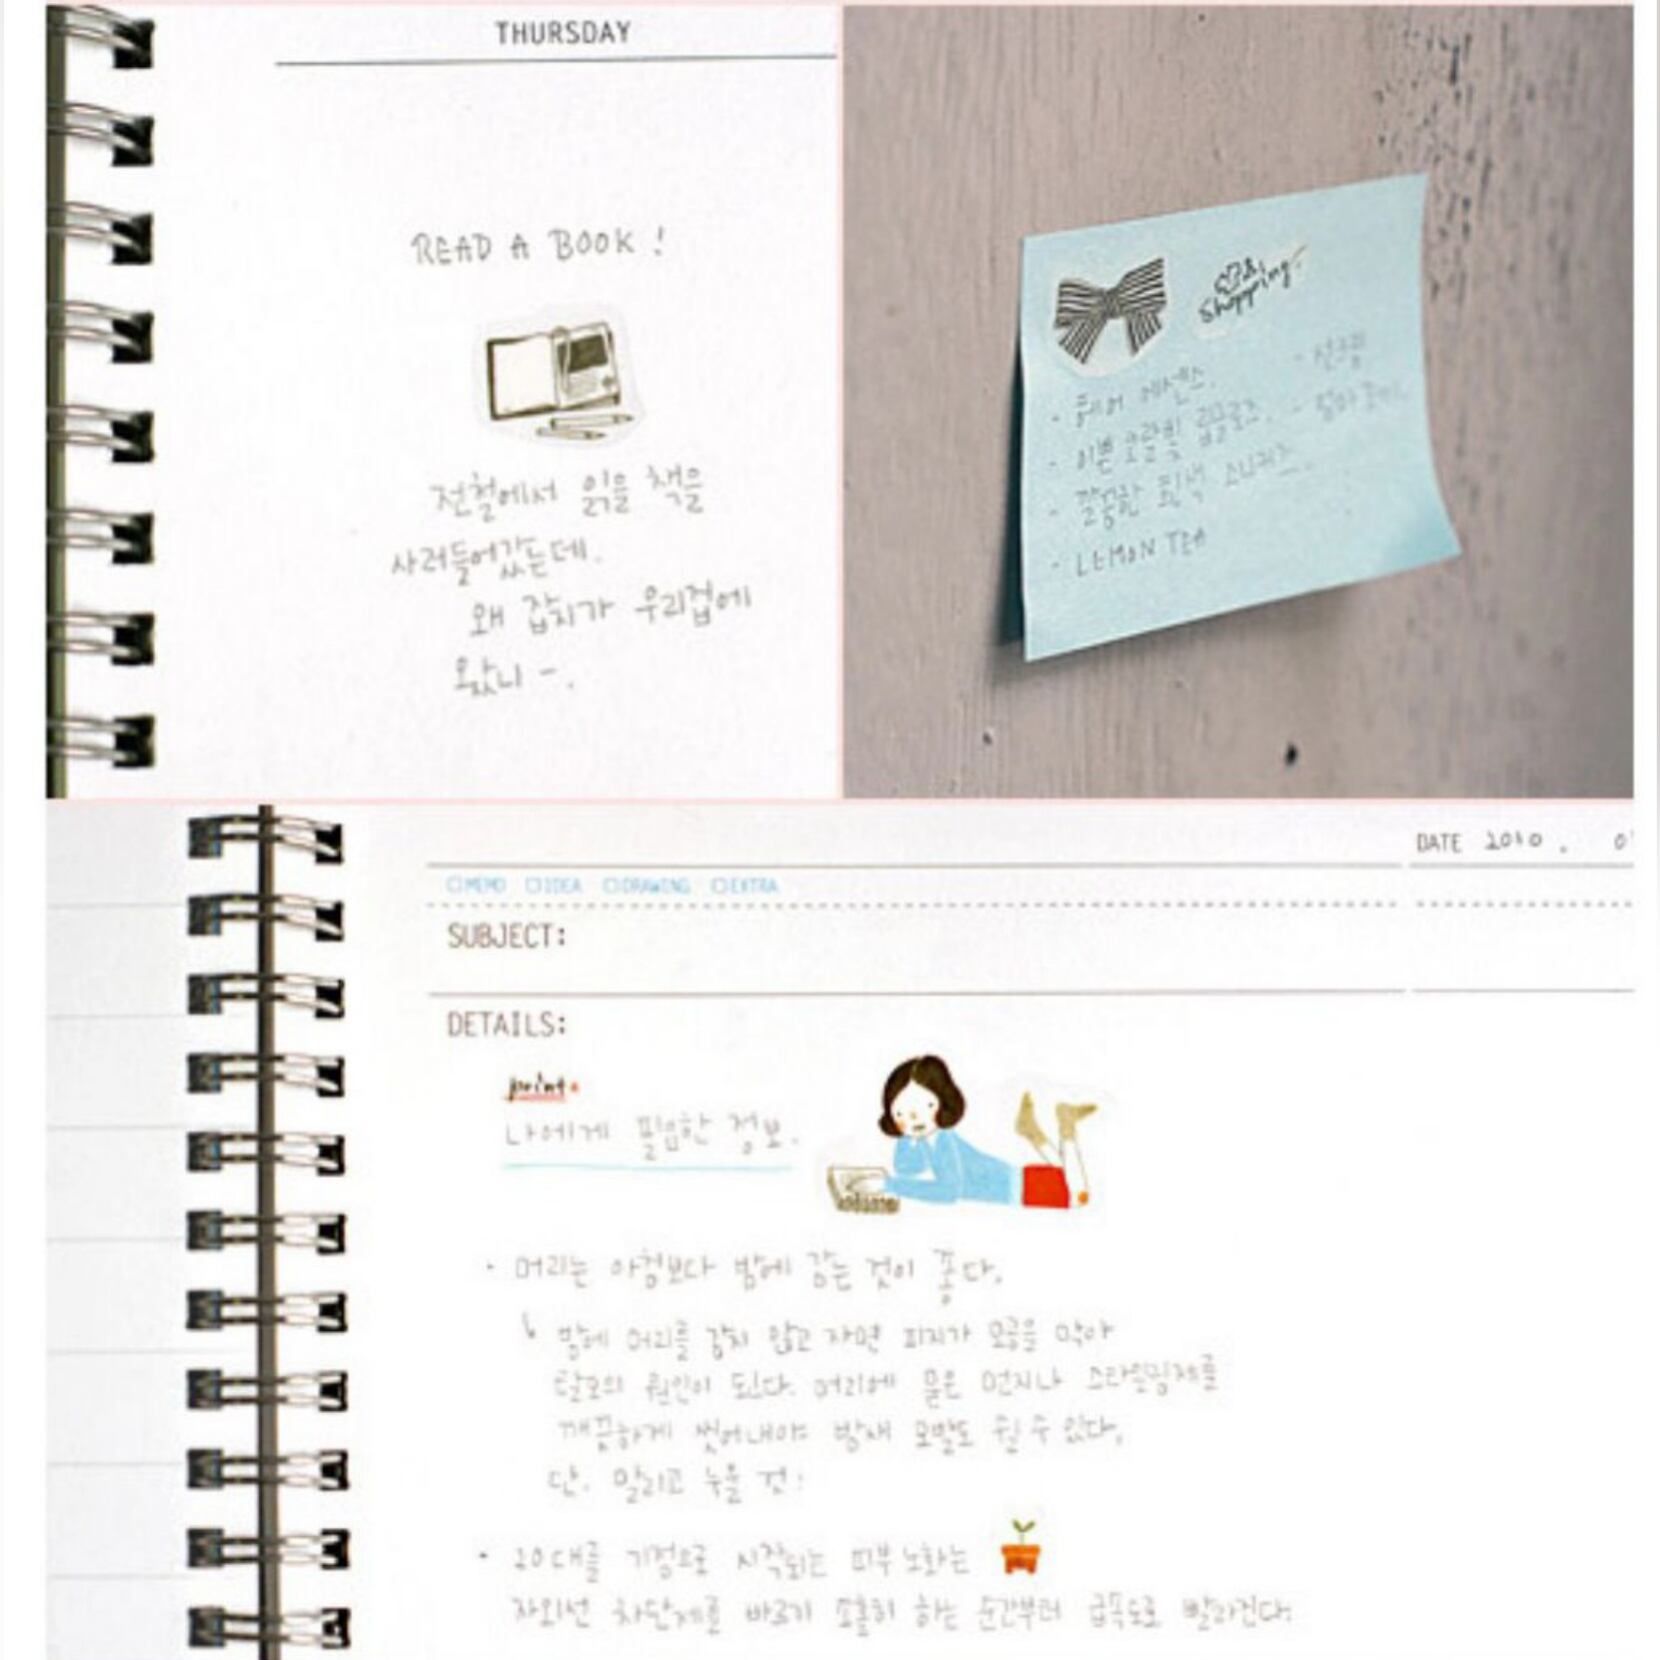 THURSDAY
READ A BOOK !
전철에서 읽을 책을
사러들어갔는데.
왜 잡지가 우리집에
왔니 -.
&
Shopping.
- 헤어 에센스.
- 선크림
- 이쁜 코랄빛 립글로즈.
- 깔끔한 흰색 스니커즈.
- LEMON TEA
DATE 2010 . 0
MEMO IDEA DRAWING EXTRA
SUBJECT:
DETAILS:
print.
나에게 필요한 정보.
· 머리는 아침보다 밤에 감는 것이 좋다.
밤에 머리를 감지 않고 자면 피지가 모공을 막아
탈모의 원인이 된다. 머리에 묻은 먼지나 스타일링제를
깨끗하게 씻어내야 밤새 모발도 쉴 수 있다.
단. 말리고 누울 것!
· 20대를 기점으로 시작되는 피부 노화는
자외선 차단제를 바르기 소홀히 하는 순간부터 급속도로 빨라진다.